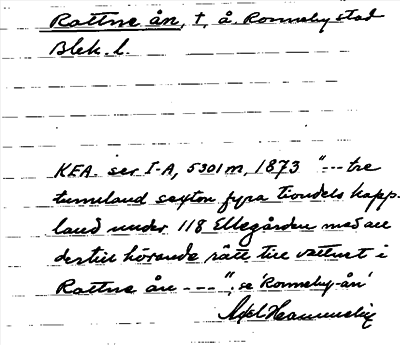 Rottne ån, t, å. Ronneby stad
Blek. l.
KEA. ser I-A, 5301 m, 1873 "--- tre
tunnland sexton fyra tiondels kapp-
land under 118 Ellegården med all
dertill hörande rätt till vattnet i
Rottne ån ---", se 'Ronneby-ån'
Axel